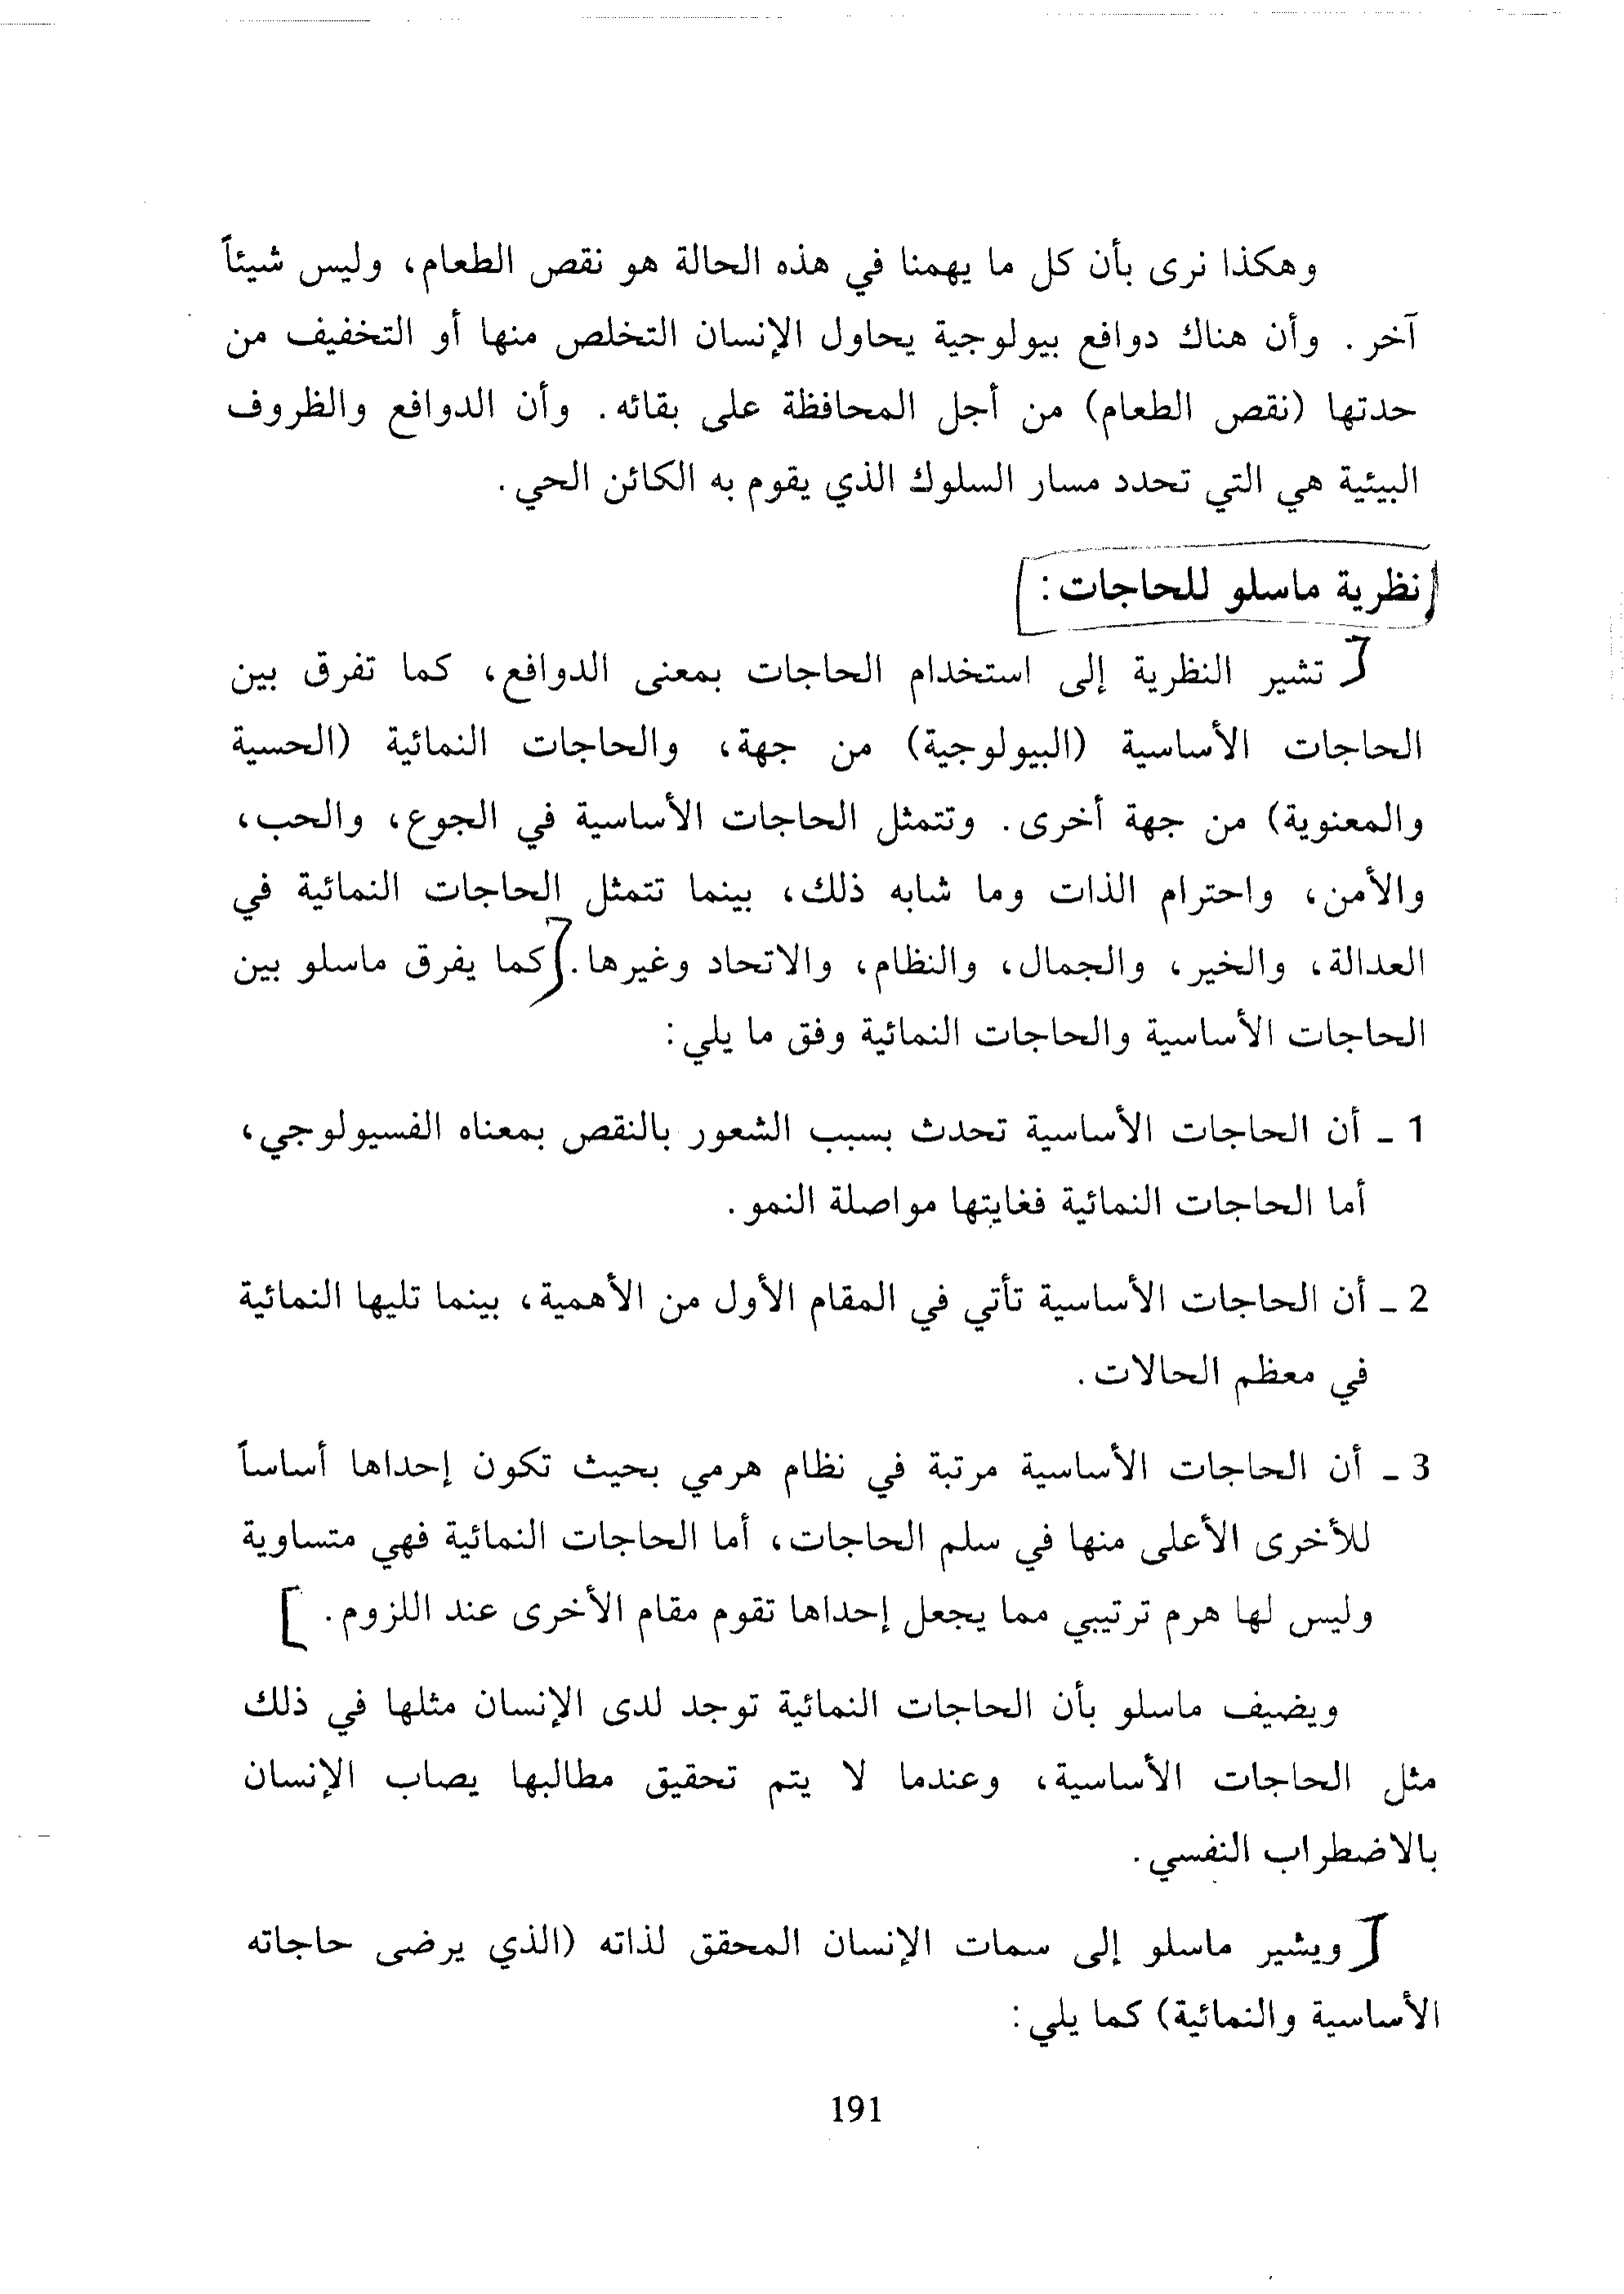 وهكذا نرى بأن كل ما يهمنا في هذه الحالة هو نقص الطعام، وليس شيئاً
آخر. وأن هناك دوافع بيولوجية يحاول الإنسان التخلص منها أو التخفيف من
حدتها (نقص الطعام) من أجل المحافظة على بقائه. وأن الدوافع والظروف
البيئية هي التي تحدد مسار السلوك الذي يقوم به الكائن الحي.
نظرية ماسلو للحاجات:
تشير النظرية إلى استخدام الحاجات بمعنى الدوافع، كما تفرق بين
الحاجات الأساسية (البيولوجية) من جهة، والحاجات النمائية (الحسية
والمعنوية) من جهة أخرى. وتتمثل الحاجات الأساسية في الجوع، والحب،
والأمن، واحترام الذات وما شابه ذلك، بينما تتمثل الحاجات النمائية في
العدالة، والخير، والجمال، والنظام، والاتحاد وغيرها. كما يفرق ماسلو بين
الحاجات الأساسية والحاجات النمائية وفق ما يلي:
1 ـ أن الحاجات الأساسية تحدث بسبب الشعور بالنقص بمعناه الفسيولوجي،
أما الحاجات النمائية فغايتها مواصلة النمو.
2 ـ أن الحاجات الأساسية تأتي في المقام الأول من الأهمية، بينما تليها النمائية
في معظم الحالات.
3 ـ أن الحاجات الأساسية مرتبة في نظام هرمي بحيث تكون إحداها أساساً
للأخرى الأعلى منها في سلم الحاجات، أما الحاجات النمائية فهي متساوية
وليس لها هرم ترتيبي مما يجعل إحداها تقوم مقام الأخرى عند اللزوم.
ويضيف ماسلو بأن الحاجات النمائية توجد لدى الإنسان مثلها في ذلك
مثل الحاجات الأساسية، وعندما لا يتم تحقيق مطالبها يصاب الإنسان
بالاضطراب النفسي.
ويشير ماسلو إلى سمات الإنسان المحقق لذاته (الذي يرضى حاجاته
الأساسية والنمائية) كما يلي:
191